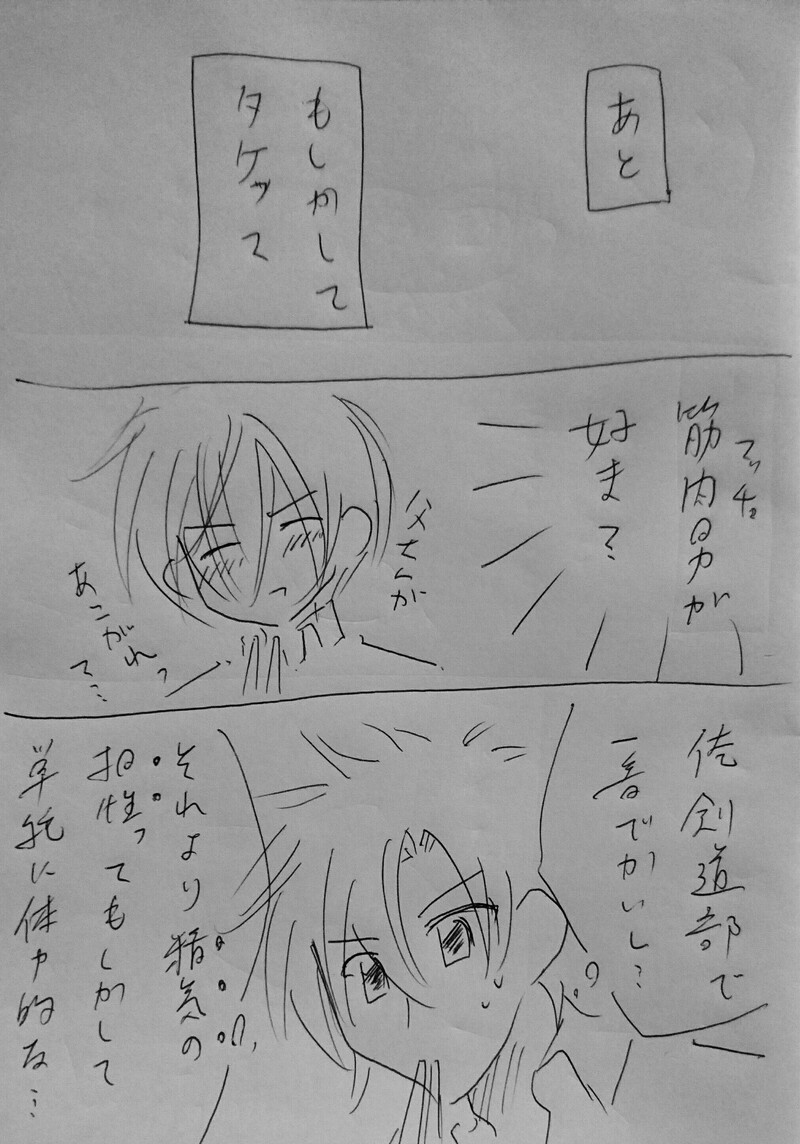 あと
もしかして
タケッて
筋肉男が
マッチョ
好ま…
父さんが
あこがれっ
て…
俺剣道部で
一番でかいし…
それより精気の
相性ってもしかして
単純に体力的な…